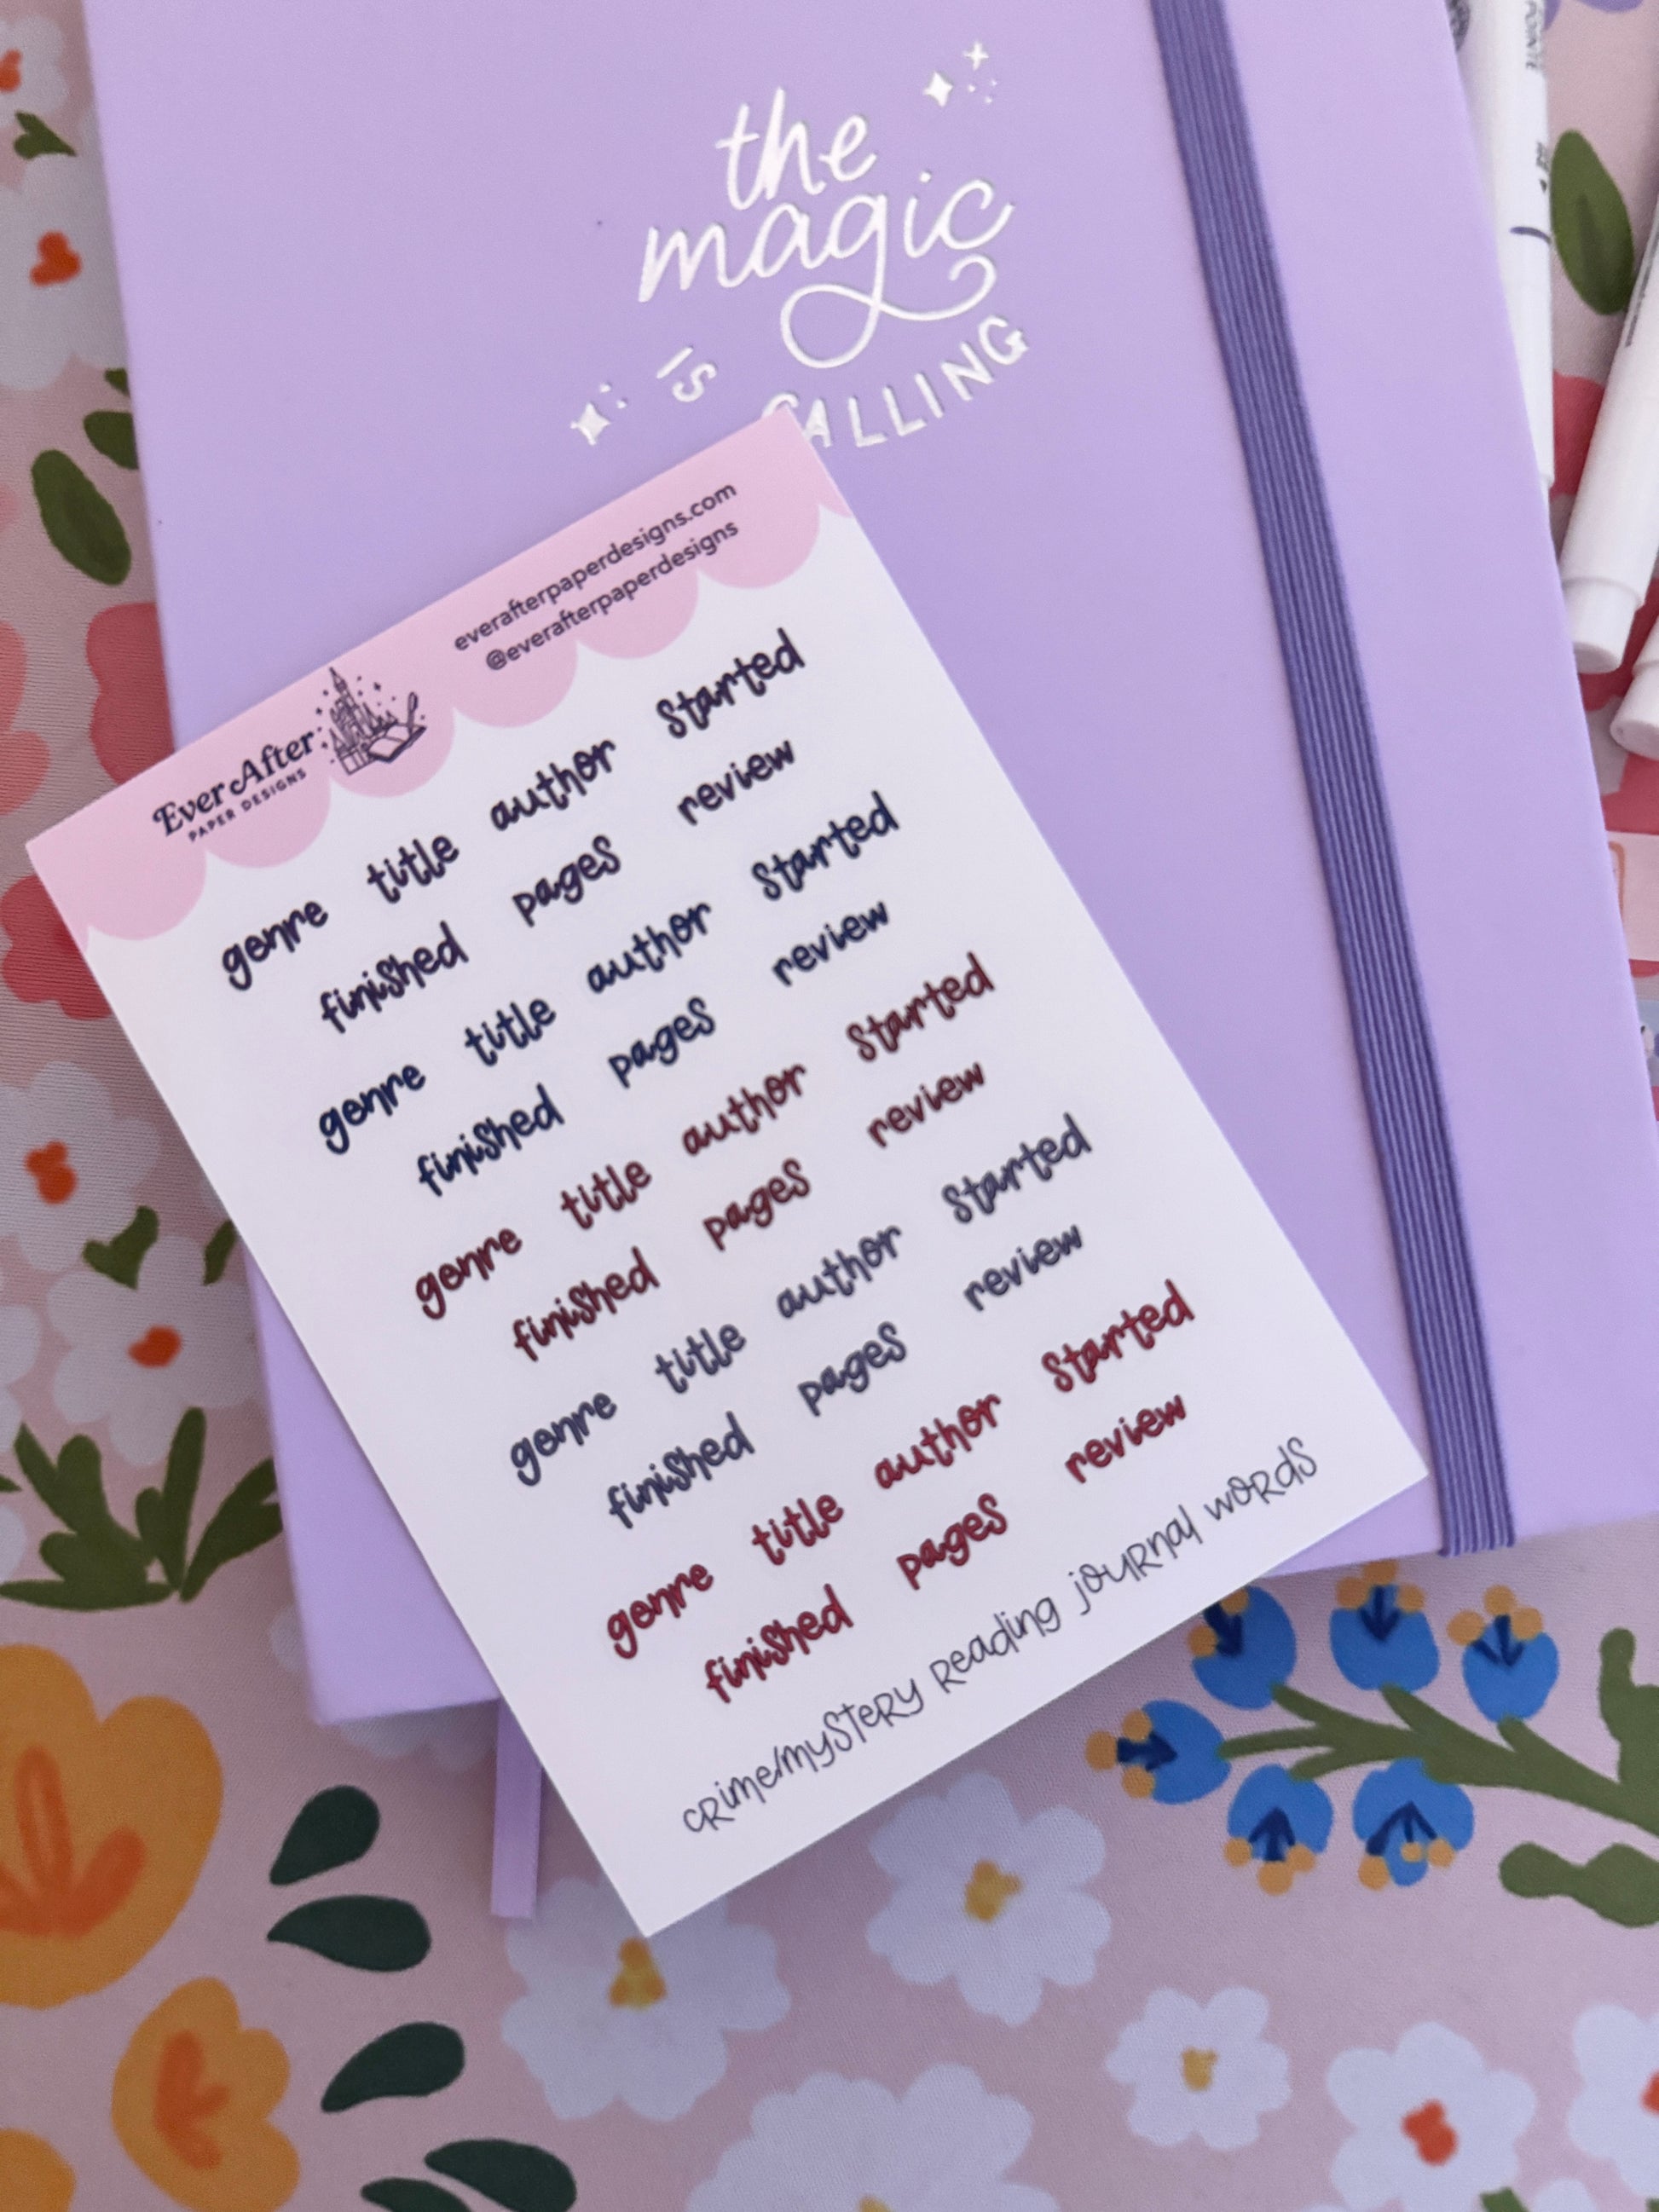 the
magic
IS CALLING
everafterpaperdesigns.com
@everafterpaperdesigns
Ever After
PAPER DESIGNS
genre title author started
finished pages review
genre title author started
finished pages review
genre title author started
finished pages review
genre title author started
finished pages review
genre title author started
finished pages review
crime/mystery reading journal words